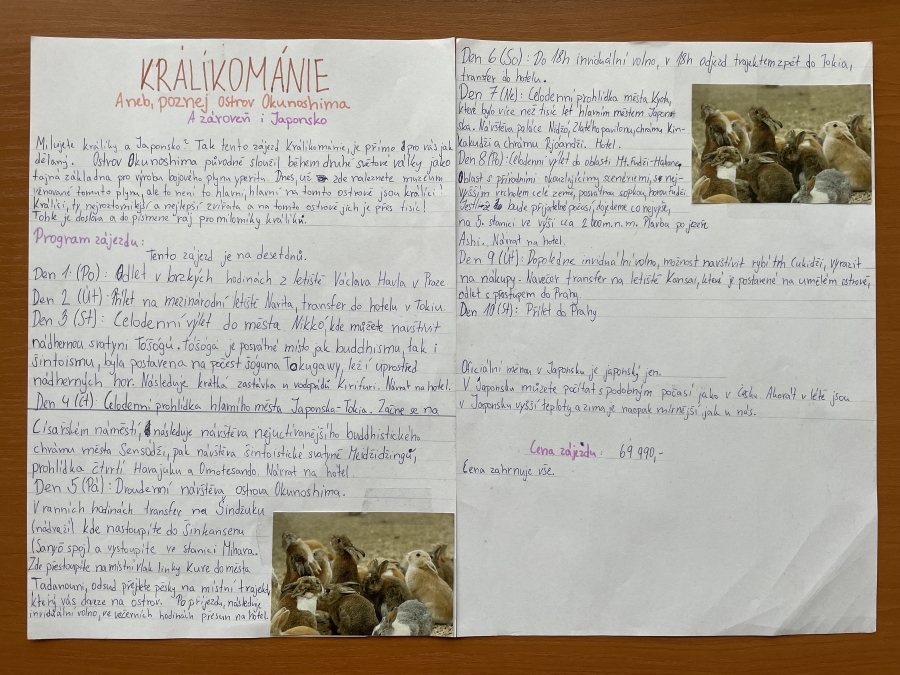 KRÁLÍKOMÁNIE
Aneb, poznej ostrov Okunoshima
A zároveň i Japonsko
Milujete králíky a Japonsko? Tak tento zájezd Králíkomanie, je přímo pro vás jak
dělaný. Ostrov Okunoshima původně sloužil během druhé světové války jako
tajná základna pro výrobu bojového plynu yperitu. Dnes, už zde naleznete muzeum
věnované tomuto plynu, ale to není to hlavní, hlavní na tomto ostrově jsou králíci!
Králíci, ty nejroztomilejší a nejlepší zvířata a na tomto ostrově jich je přes tisíc!
Tohle je doslova a do písmene ráj pro milovníky králíků.
Program zájezdu:
Tento zájezd je na desetdnů.
Den 1 (Po): Odlet v brzkých hodinách z letiště Václava Havla v Praze
Den 2 (Út): Přílet na mezinárodní letiště Narita, transfer do hotelu v Tokiu.
Den 3 (St): Celodenní výlet do města Nikkó, kde můžete navštívit
nádhernou svatyni Tóšógú. Tóšógú je posvátné místo jak buddhismu, tak i
šintoismu, byla postavena na počest šóguna Tokugawy, leží uprostřed
nádherných hor. Následuje krátká zastávka u vodopádů Kirifuri. Návrat na hotel.
Den 4 (Čt): Celodenní prohlídka hlavního města Japonska-Tokia. Začne se na
Císařském náměstí, následuje návštěva nejuctívanějšího buddhistického
chrámu města Sensódži, pak návštěva šintoistické svatyně Meidžidžingú,
prohlídka čtvrtí Harajuku a Omotesando. Návrat na hotel
Den 5 (Pá): Dvoudenní návštěva ostrova Okunoshima.
V ranních hodinách transfer na Šindžuku
(nádraží) kde nastoupíte do Šinkansenu
(Sanyó spoj) a vystoupíte ve stanici Mihara.
Zde přestoupíte na místní vlak linky Kure do města
Tadanoumi, odsud přejdete pěšky na místní trajekt,
který vás doveze na ostrov. Po příjezdu, následuje
inviduální volno, ve večerních hodinách přesun na hotel.
Den 6 (So): Do 18h inviduální volno, v 18h odjezd trajektem zpět do Tokia,
transfer do hotelu.
Den 7 (Ne): Celodenní prohlídka města Kyoto,
které bylo více než tisíc let hlavním městem Japon-
ska. Návštěva paláce Nidžó, Zlatého pavilonu, chrámu Kin-
kakudži a chrámu Rjóandži. Hotel.
Den 8 (Po): Celodenní výlet do oblasti Mt. Fudži-Hakone,
oblast s přírodními okouzlujícími scenériemi, s nej-
vyšším vrcholem celé země, posvátnou sopkou, horou Fudži.
Jestliže bude příjatelné počasí, dojdeme co nejvýše,
na 5. stanici ve výši cca 2 000m.n.m. Plavba po jezeře
Ashi. Návrat na hotel.
Den 9 (Út): Dopoledne inviduální volno, možnost navštívit rybí trh Cukidži, vyrazit
na nákupy. Navečer transfer na letiště Kansai, které je postavené na umělém ostrově,
odlet s přestupem do Prahy
Den 10 (St): Přílet do Prahy
Oficiální měnou v Japonsku je japonský jen.
V Japonsku můžete počítat s podobným počasí jako v Česku. Akorát v létě jsou
v Japonsku vyšší teploty a zima je naopak mírnější jak u nás.
Cena zájezdu: 69 990,-
Cena zahrnuje vše.